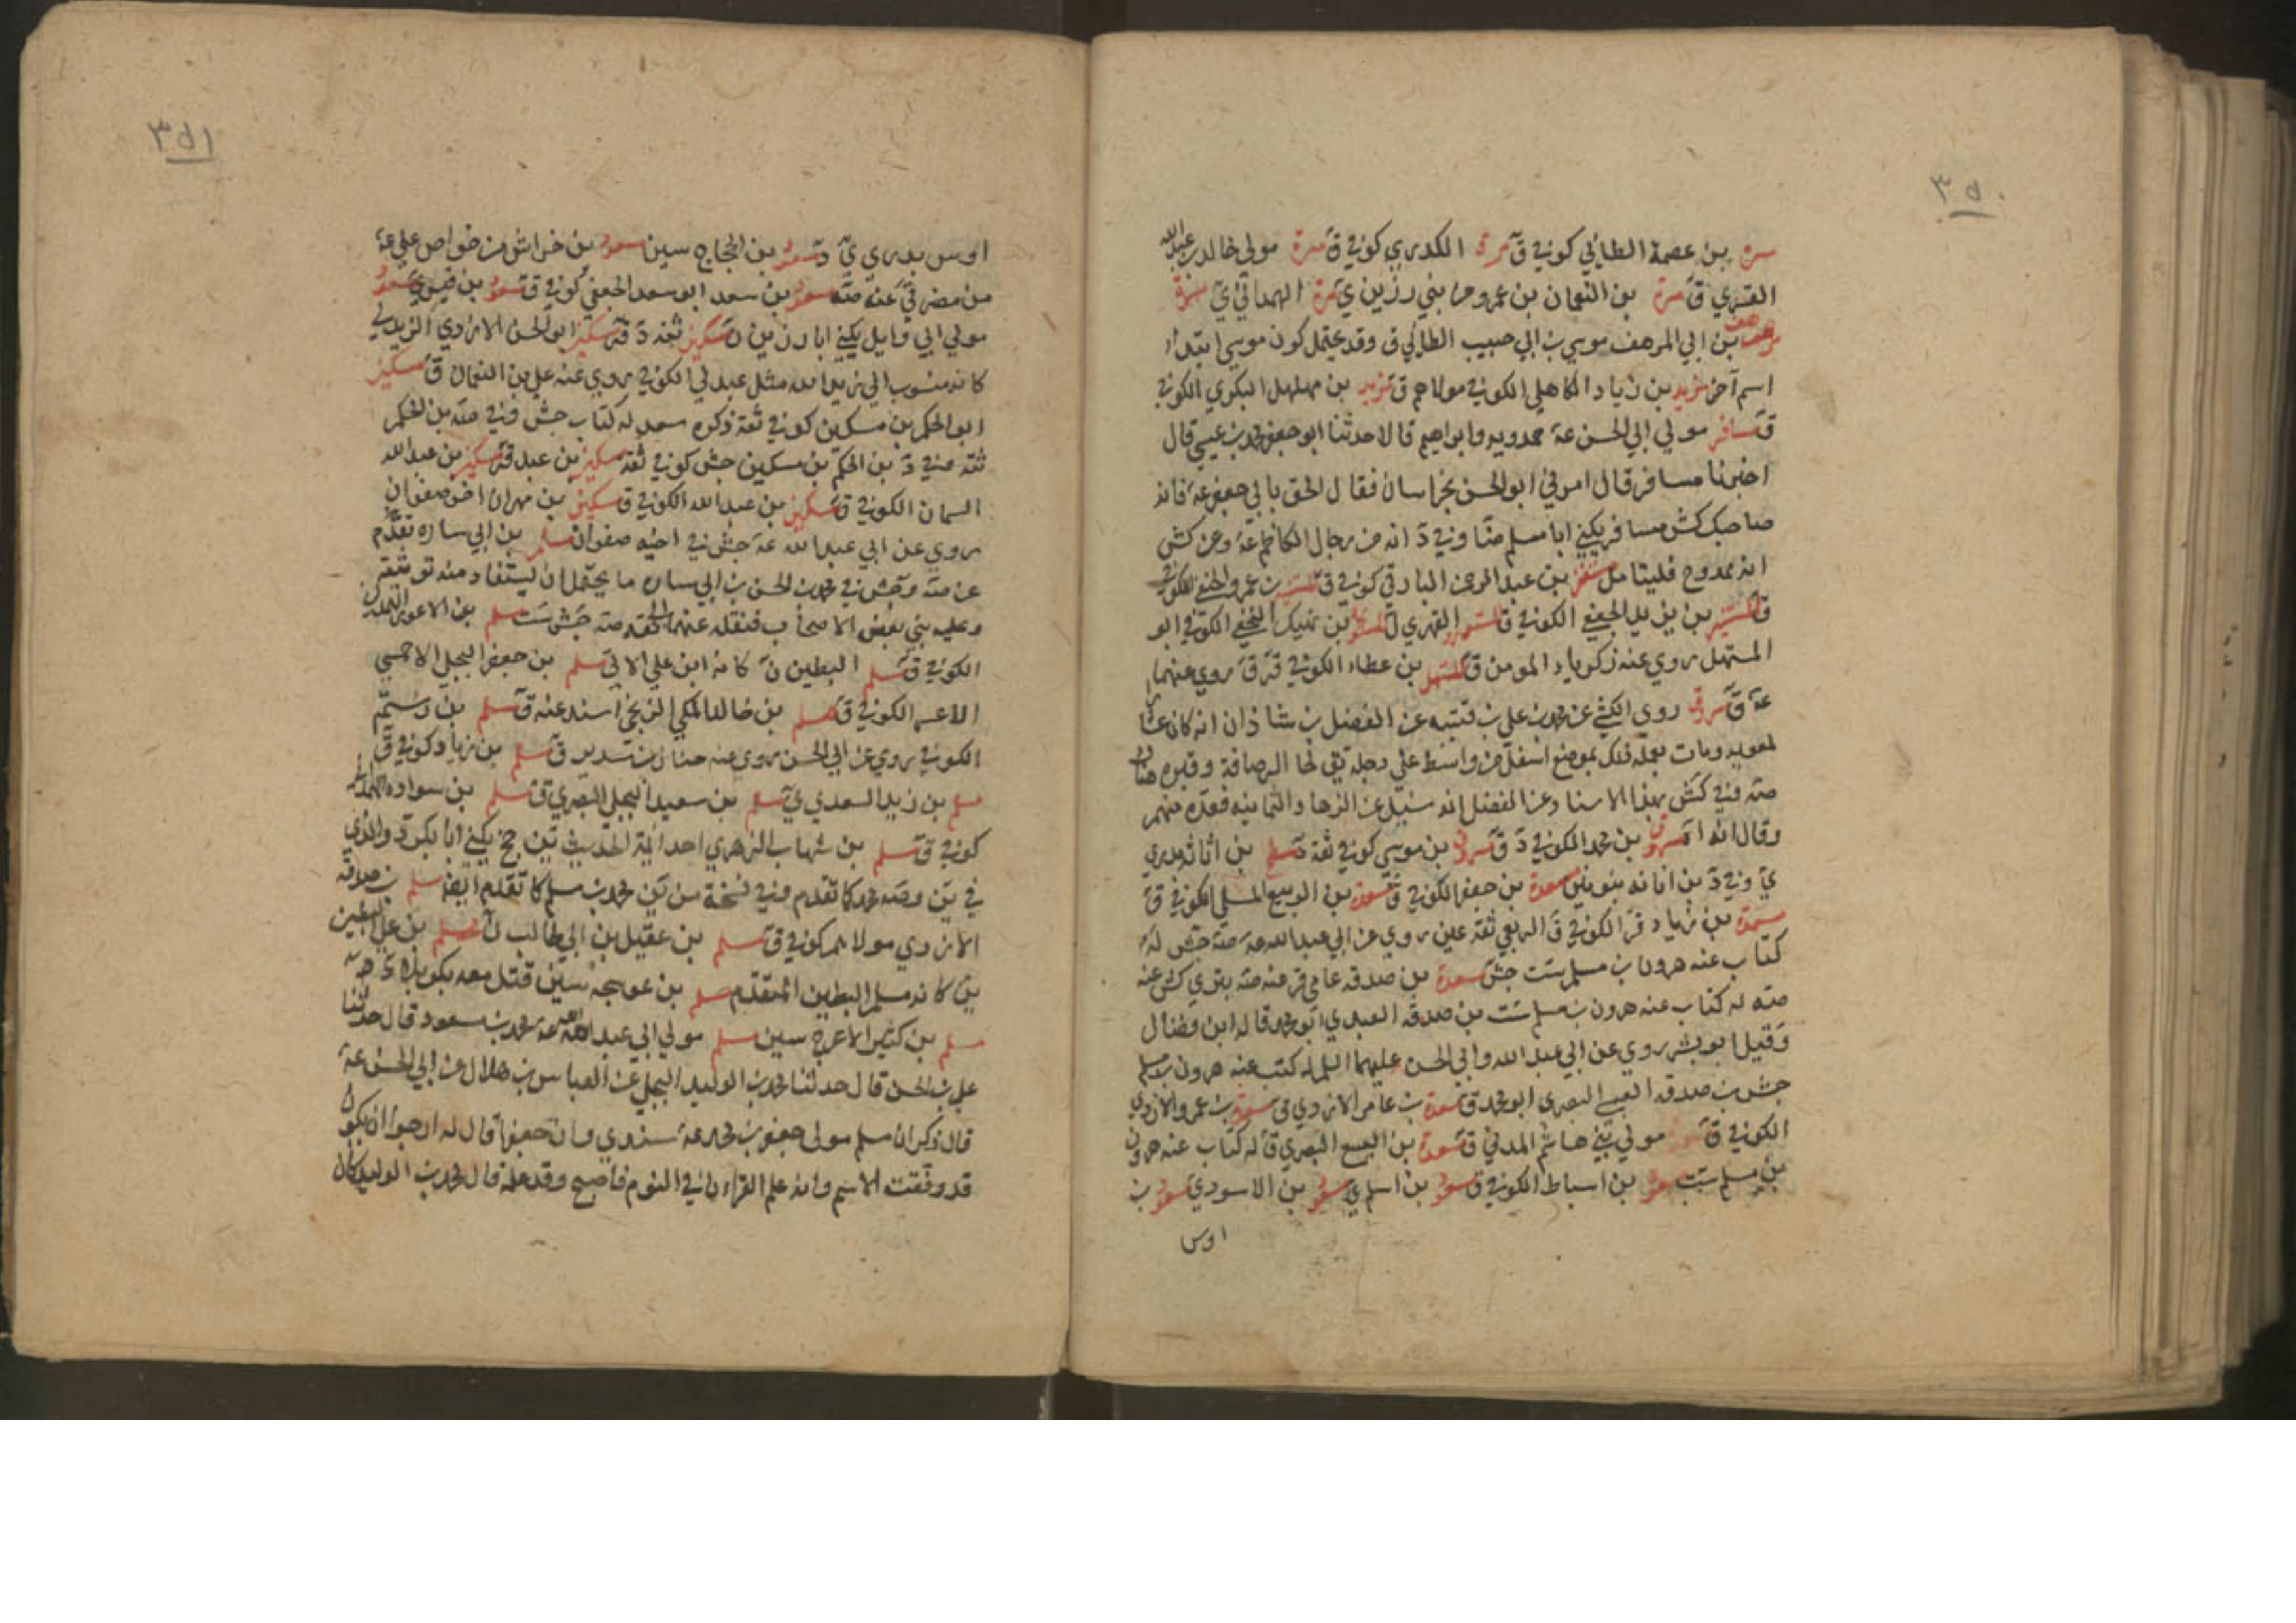 ٣٥٠
مرة بن عصمة الطائي كوفي ق مرة الكدري كوفي ق مرة مولي خالد بن عبدالله
القسري ق مرة بن النعمان بن عمرو من بني رزين ي مرة الهمداني ي
مرهف بن ابي المرهف موسي بن ابي حبيب الطائي ق وقد يحتمل كون موسي ابتداء
اسم آخر مزيد بن زياد الكاهلي الكوفي مولاهم ق مزيد بن مهلهل البكري الكوفي
ق مسافر مولي ابي الحسن عة حمدويه وابراهيم قالا حدثنا ابو جعفر محمد بن عيسي قال
اخبرنا مسافر قال امرني ابو الحسن بخراسان فقال الحق بابي جعفر عة فانه
صاحبك كش مسافر يكني ابا مسلم ضا وفي د انه من رجال الكاظم عة وعن كش
انه ممدوح فليتامل بن عبد الرحمن البارقي كوفي ق المستنير بن عمرو الجعفي الكوفي
ق المستنير بن يزيد الجعفي الكوفي ق المستورد الفهري ل بن نهيك النخعي الكوفي ابو
المستهل روي عنه زكريا المومن ق المستهل بن عطاء الكوفي قر ق روي عنهما
عة ق مسروق روي الكشي عن محمد بن علي بن قتيبه عن الفضل بن شاذان انه كان عشارا
لمعويه ومات بعمله ذلك بموضع اسفل من واسط علي دجلة يقال لها الرصافة وقبره هناك
صه وفي كش بهذا الاسناد عن الفضل انه سئل عن الزهاد الثمانيه فعده منهم
وقال انه مسروق بن محمد الكوفي د ق مسروق بن موسي كوفي ثقة د مسطح بن اثاثه بدري
ي وفي د بن اثاثه مسعدة بن جعفر الكوفي ق مسعدة بن الربيع السلمي الكوفي ق
مسعدة بن زياد قر الكوفي ق الربعي ثقة عين روي عن ابي عبد الله عة صه جش له
كتاب عنه هرون بن مسلم ست جش مسعدة بن صدقه عامي قر عنه صه بتري كش عنه
صه له كتاب عنه هرون بن مسلم ست بن صدقه العبدي ابو محمد قاله ابن فضال
وقيل ابو بشر روي عن ابي عبد الله وابي الحسن عليهما السلم له كتب عنه هرون بن مسلم
جش بن صدقه البصري ابو محمد ق مسعدة بن عامر الازدي ق مسعدة بن عمرو الازدي
الكوفي ق مولي بني هاشم المدني ق مسعدة بن اليسع البصري ق له كتاب عنه هرون
بن مسلم ست بن اسباط الكوفي ق مسعود بن اسلم ي مسعود بن الاسود ي مسعود بن
اوس
٣٥١
اوس بدري ي د مسعود بن الحجاج سين مسعود بن خراش من خواص علي عة
من مضر عنه صه مسعود بن سعد ابو سعد الجعفي كوفي ق مسعود بن مسعود
مولي ابي وايل يكني ابا رزين ن مسكين ثقه د ق مسكين ابو الحسن الازدي الزيدلي
كانه منسوب الي زيد الله مثل عبدلي الكوفي روي عنه علي بن النعمان ق مسكين
ابو الحكم بن مسكين كوفي ثقة ذكره سعد له كتاب جش وفي صه بن الحكم
ثقه وفي د بن الحكم بن مسكين جش كوفي ثقه مسكين بن عبد ق مسكين بن عبد الله
السمان الكوفي ق مسكين بن عبد الله الكوفي ق مسكين بن مهران اخو صفوان
روي عن ابي عبد الله عة جش في اخيه صفوان مسلم بن ابي ساره تقدم
عن صه وجش في محمد بن الحسن بن ابي ساره ما يحتمل ان يستفاد منه توثيقه
وعليه بني بعض الاصحاب فنقله عنهما ثقه صه جش ست مسلم بن الاعور
الكوفي ق مسلم البطين ن كانه ابن علي الاتي مسلم بن جعفر البجلي الاحمسي
الاعسر الكوفي ق مسلم بن خالد المكي الزنجي اسند عنه ق مسلم بن رستم
الكوفي روي عن ابي الحسن روي عنه حنان بن سدير ق مسلم بن زياد كوفي ق
مسلم بن زيد السعدي ي مسلم بن سعيد البجلي البصري ق مسلم بن سواده
كوفي ق مسلم بن شهاب الزهري احد ائمة الحديث ين جخ يكني ابا بكر د والذي
في ين وصه محمد كما تقدم وفي نسخة من ين محمد بن مسلم كما تقدم ايضا مسلم بن صدقه
الازدي مولاهم كوفي ق مسلم بن عقيل بن ابي طالب ن مسلم بن علي البطين
ين كانه مسلم البطين المتقدم مسلم بن عوسجه سين قتل معه بكربلاء
مسلم بن كثير الاعرج سين مسلم مولي ابي عبد الله عة محمد بن مسعود قال حدثنا
علي بن الحسن قال حدثنا محمد بن الوليد البجلي عن العباس بن هلال عن ابي الحسن عة
قال ذكر ان مسلم مولي جعفر بن محمد عة سندي وان جعفرا قال له ارجوا ان تكون
قد وفقت الاسم وانه علم القراءن في النوم فاصبح وقد علمه قال محمد بن الوليد كان